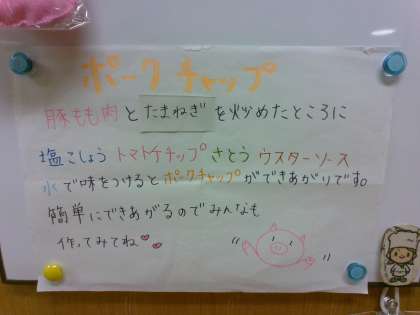 ポークチャップ
豚もも肉とたまねぎを炒めたところに
塩こしょう トマトケチップ さとう ウスターソース
水で味をつけるとポークチャップができあがりです。
簡単にできあがるのでみんなも
作ってみてね